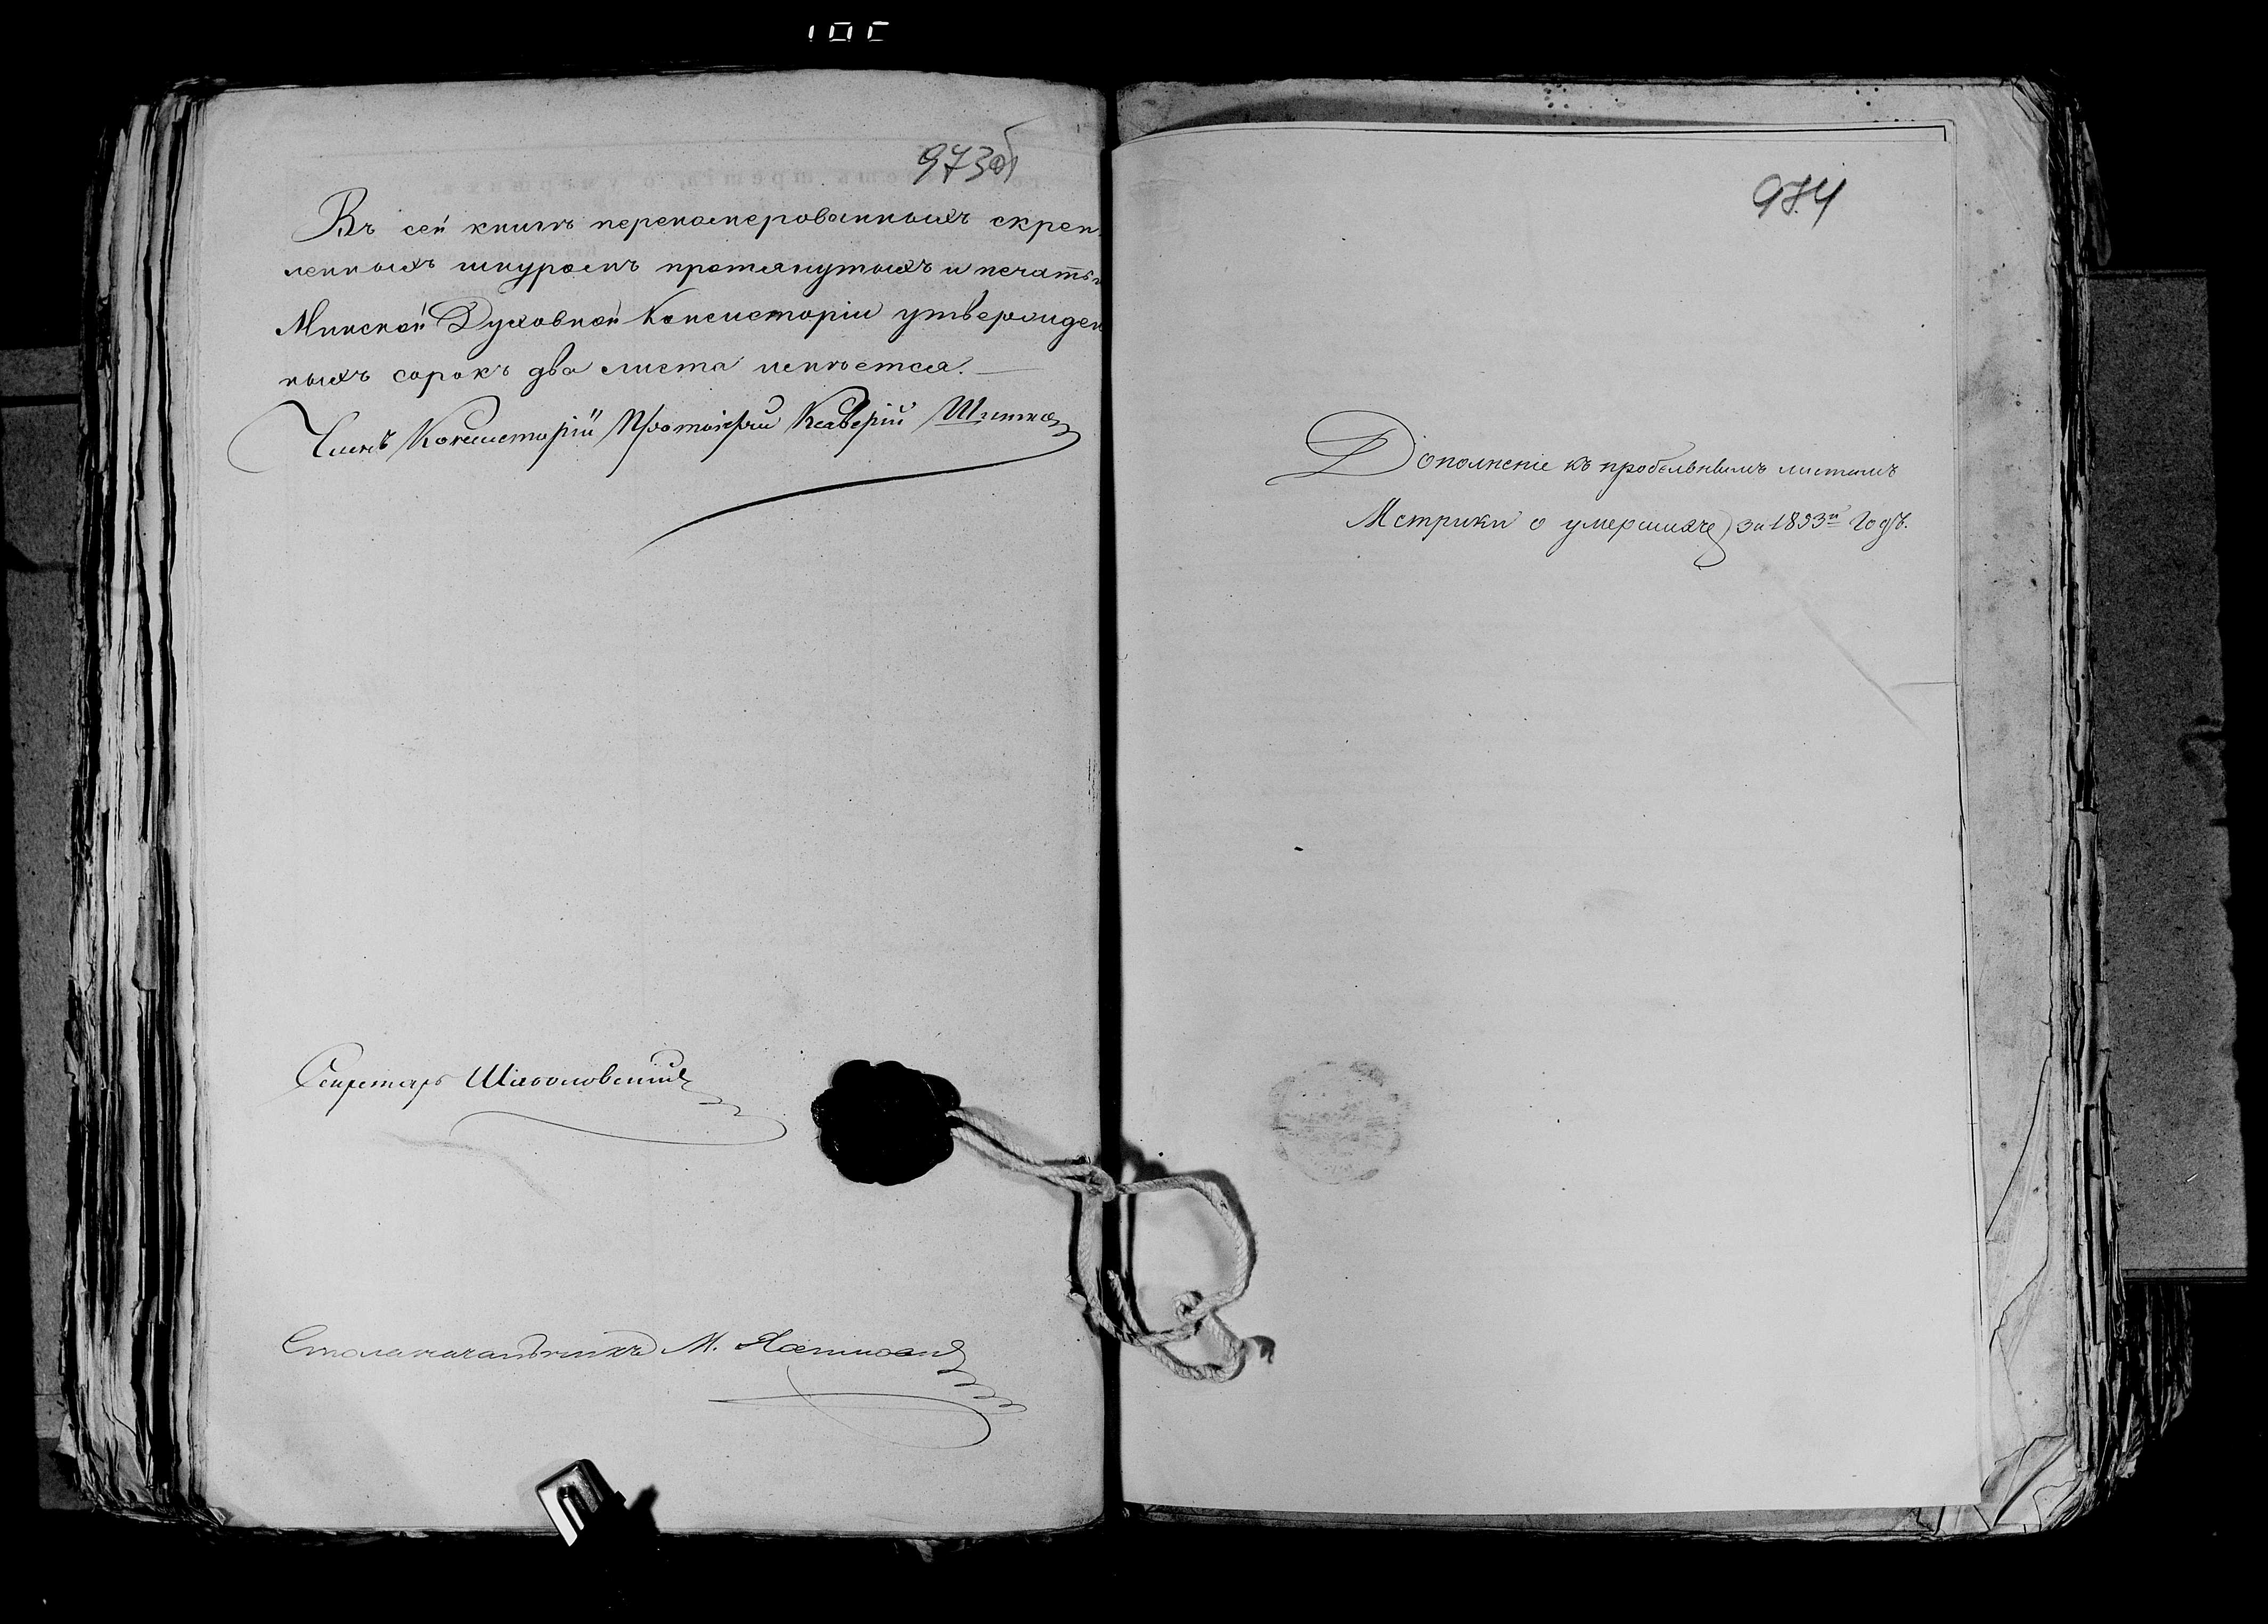 973об
Въ сей книгѣ перенумерованныхъ скреп-
ленныхъ шнуромъ протянутыхъ и печатью
Минской Духовной Консисторіи утвержден
ныхъ сорокъ два листа имѣется.
Членъ Консисторіи Протоіерей Ксаверій
Секретарь
Столоначальникъ М.
974
Дополненіе къ пробельнымъ листамъ
Метрики о умершихъ за 1893й Годъ.